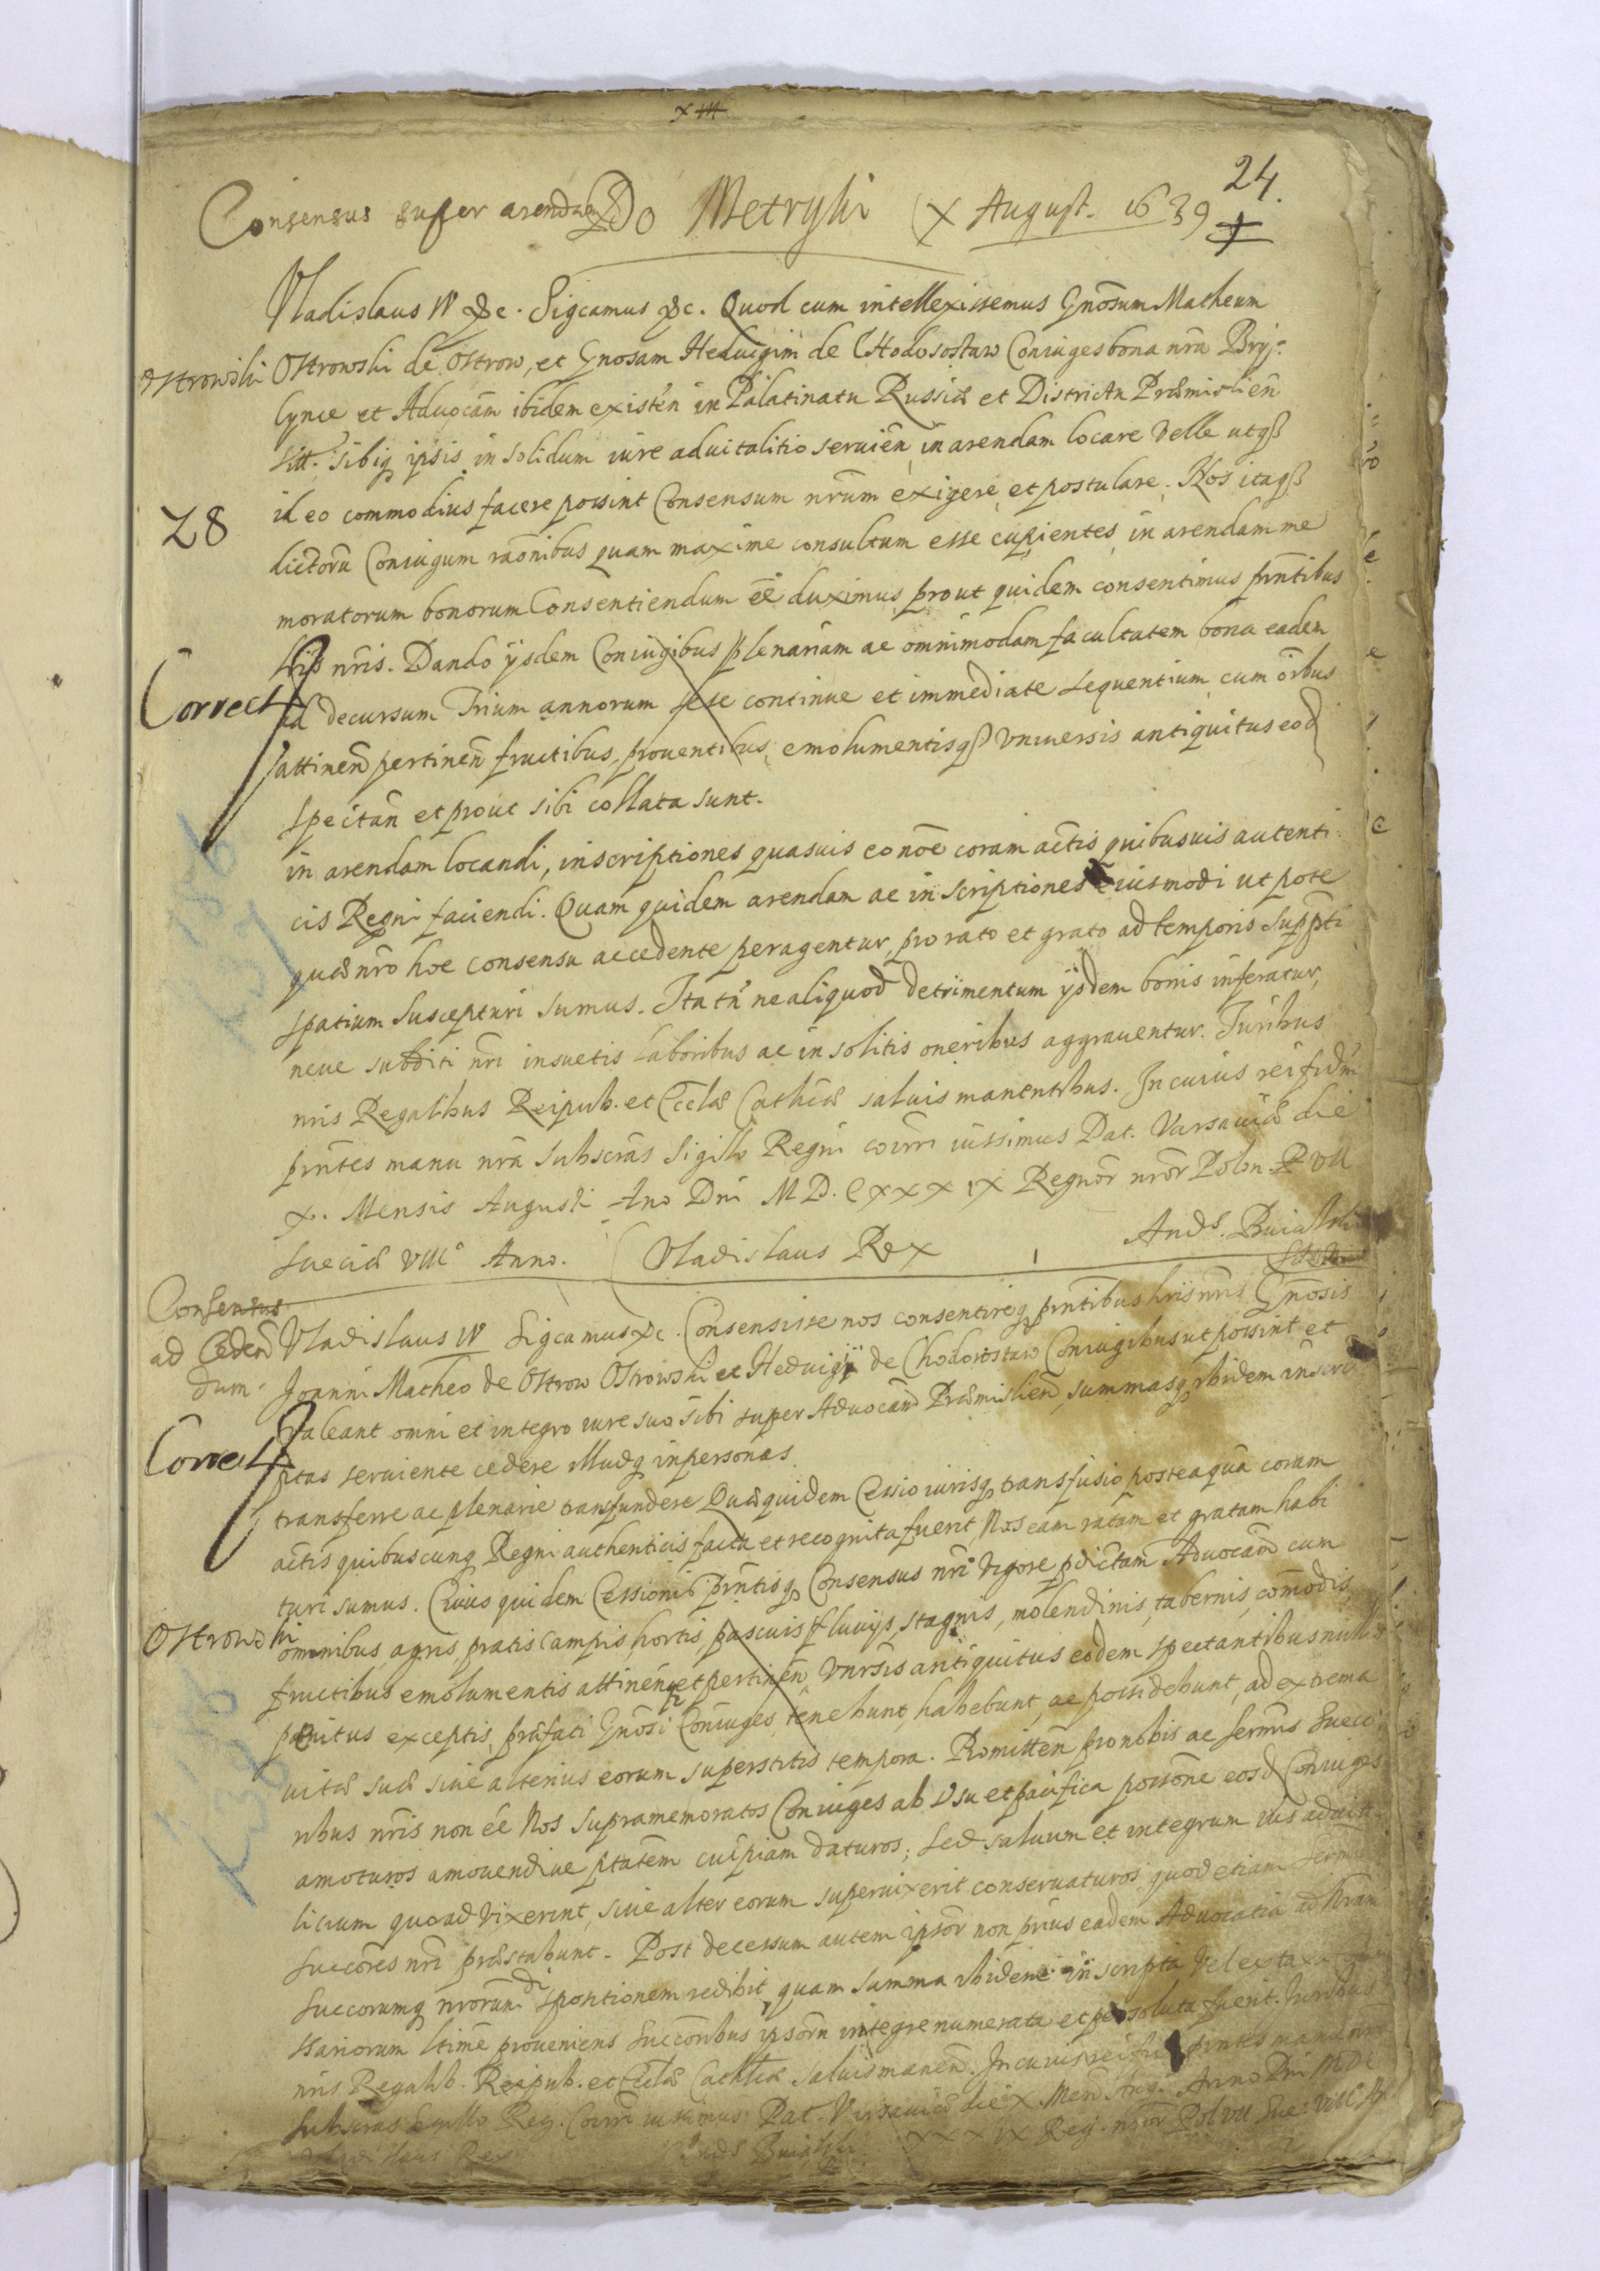 24.
Consensus super arendam Do Metryki X August. 1639
Vladislaus IV &c. Sigcamus &c. Quod cum intellexissemus Gnosum Matheum
Ostrowski Ostrowski de Ostrow, et Gnosam Heduigim de Chodorostaw Coniuges bona nra Bryj-
lynce et Aduocam ibidem existen in Palatinatu Russiæ et Districtu Præmislien
sitt. sibiq ipsis in solidum iure aduitalitio seruien, in arendam locare velle utq
id eo commodius facere possint Consensum nrum exigere et postulare. Nos itaq
28
dictoru Coniugum raonibus quam maxime consultum esse cupientes, in arendam me
moratorum bonorum Consentiendum ee duximus, prout quidem consentimus pntibus
lris nris. Dando ysdem Coniugibus plenariam ac omnimodam facultatem bona eadem
Correct
ad decursum Trium annorum sese continue et immediate sequentium, cum oibus
attinen pertinen fructibus, prouentibus, emolumentisq vniuersis antiquitus eod
spectan et prout sibi collata sunt.
in arendam locandi, inscriptiones quasuis eo noe coram actis quibusuis autenti
cis Regni faciendi. Quam quidem arendam ac inscriptiones eiusmodi ut pote
quæ nro hoc consensu accedente peragentur, pro rato et grato ad temporis suppti
spatium suscepturi sumus. Ita tn ne aliquod detrimentum ysdem bonis inferatur,
neue subditi nri insuetis laboribus ac insolitis oneribus aggrauentur. Juribus
nris Regalibus Reipub. et Ecclæ Cathcæ saluis manentibus. In cuius rei fidm
pntes manu nra subscras sigillo Regni coirri iussimus Dat. Varsauiæ die
X. Mensis Augusti Ano Dni M D. C XXX IX Regnor nror Polon VII
Sueciæ VIII Anno. Vladislaus Rex Ands. Buialski
Consensus
ad Ceden
dum.
Vladislaus IV Sigcamus &c. Consensisse nos consentireq pntibus lris nris Gnosis
Joanni Matheo de Ostrow Ostrowski et Heduigi de Chodorostaw Coniugibus ut possint et
valeant omni et integro iure suo sibi super Aduocam Præmislien, summasq ibidem inscri
Correct
ptas seruiente cedere illudq in personas
transferre ac plenarie transfundere Quæ quidem Cessio iurisq transfusio posteaqua coram
actis quibuscunq Regni authenticis facta et recognita fuerit, Nos eam ratam et gratam habi
turi sumus. Cuius quidem Cessionis pntisq Consensus nri vigore pdictam Aduocam cum
Ostrowski
omnibus agris, pratis, campis, hortis, pascuis, fluuijs, stagnis, molendinis, tabernis, comodis,
fructibus emolumentis attinen, et pertinen, vnrsis antiquitus eodem spectantibus nullis
penitus exceptis, præfati Gnosi Coniuges tenebunt, habebunt, ac possidebunt, ad extrema
uitæ suæ siue alterius eorum superstitis tempora. Promitten pro nobis ac sermis Succo
ribus nris non ee Nos supramemoratos Coniuges ab vsu et pacifica possone eosd Coniuges
amoturos amouendiue ptatem cuipiam daturos; sed saluum et integrum ius aduita
litium quoad vixerint, siue alter eorum superuixerit conseruaturos, quod etiam sermi
Succores nri præstabunt. Post decessum autem ipsor non prius eadem Aduocatia ad nram
Succorumq nrorum dispositionem redibit, quam summa ibidem inscripta vel
ssariorum ltime proueniens Succoribus ipsoru integre numerata et persoluta fuerit. Juribus
nris Regalib. Reipub. et Ecclæ Cathcæ saluis manen. In cuius rei fid pntes manu nra
Subscras Sigillo Reg. Coirri iussimus Dat. Varsauiæ die X. Men Aug. Anno Dni MDC
XXX IX Reg. nror Pol VII Sue. VIII
Vladislaus Rex Ands Buialski